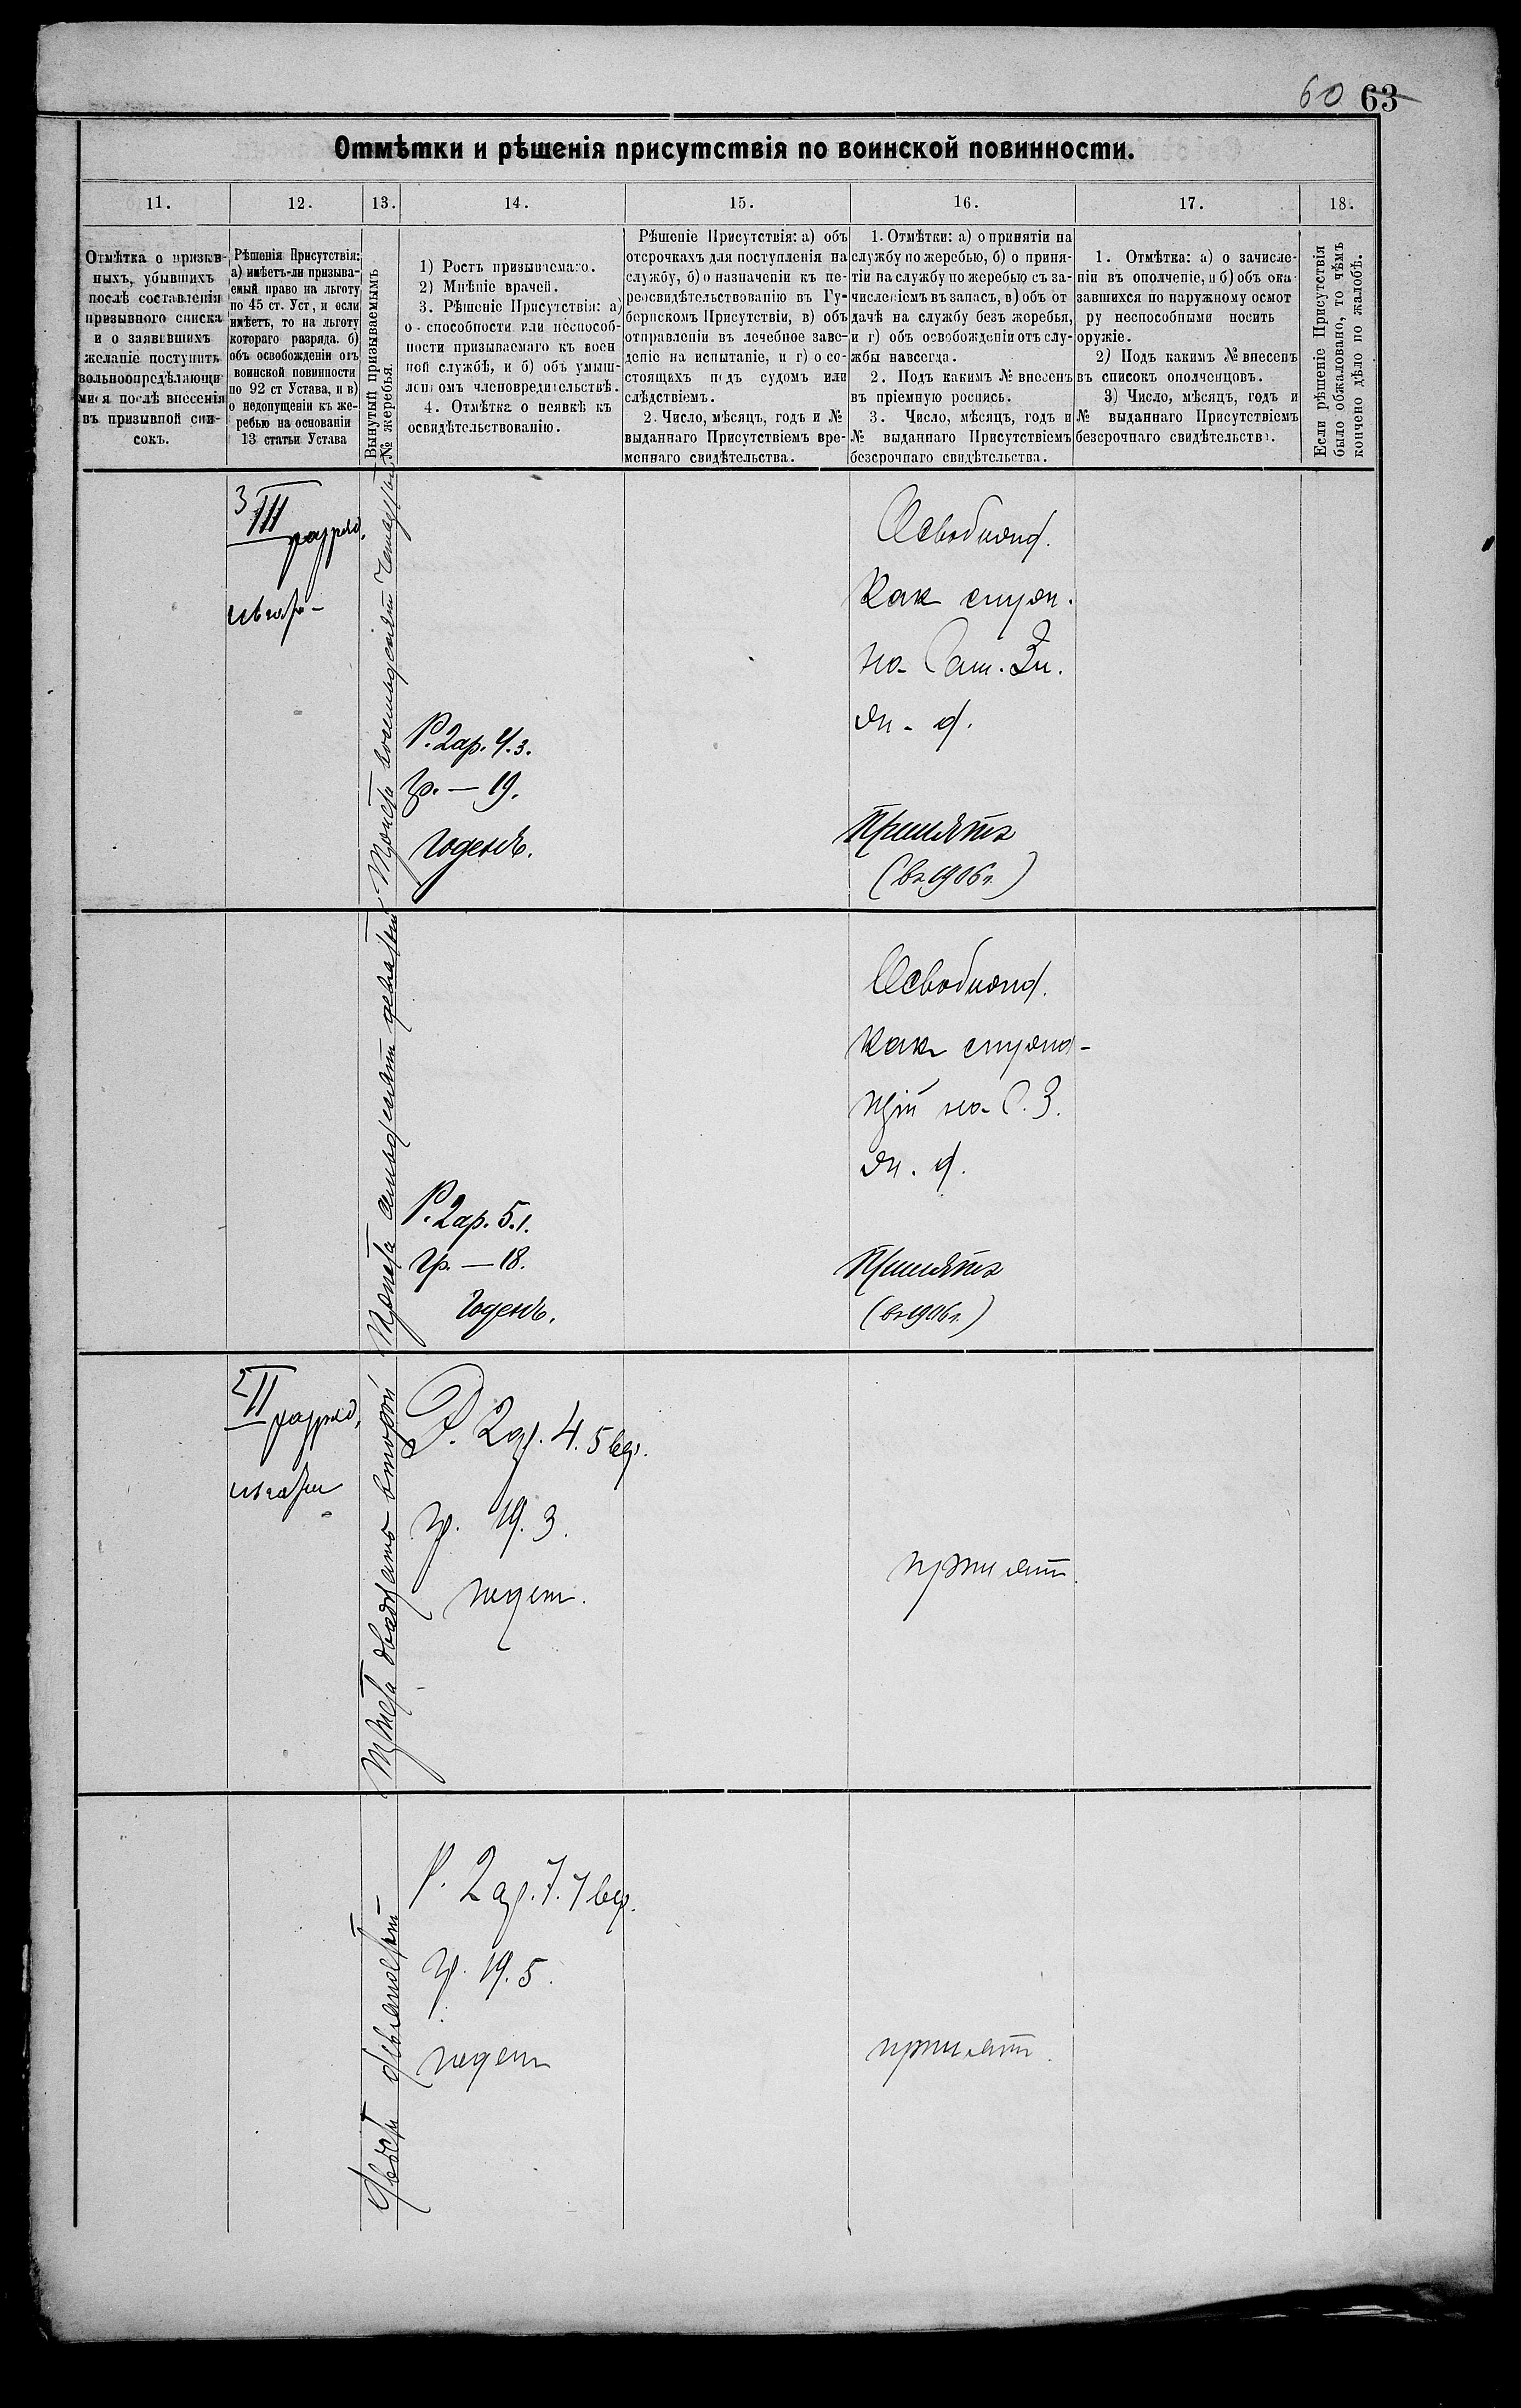 60 63
Отмѣтки и рѣшенія присутствія по воинской повинности.
11. 12. 13. 14. 15. 16. 17. 18.
Отмѣтка о призыв-
ныхъ, убывшихъ
послѣ составленія
призывного списка
и о заявившихъ
желаніе поступить
вольноопредѣляющи
мися послѣ внесенія
въ призывной спи-
сокъ.
Рѣшенія Присутствія:
а) имѣетъ-ли призыва-
емый право на льготу
по 45 ст. Уст, и если
имѣетъ, то на льготу
котораго разряда. б)
объ освобожденіи отъ
воинской повинности
по 92 ст Устава, и в)
о недопущеніи къ же-
ребью на основаніи
13 статьи Устава
Вынутый призываемымъ
№ жеребья.
1) Ростъ призываемаго.
2) Мнѣніе врачей.
3. Рѣшеніе Присутствія: а)
о способности или неспособ-
ности призываемаго къ воен
ной службѣ, и б) объ умыш-
ленномъ членовредительствѣ.
4. Отмѣтка о неявкѣ къ
освидѣтельствованію.
Рѣшеніе Присутствія: а) объ
отсрочкахъ для поступленія на
службу, б) о назначеніи къ пе-
реосвидѣтельствованію въ Гу-
бернскомъ Присутствіи, в) объ
отправленіи въ лечебное заве-
деніе на испытаніе, и г) о со-
стоящихъ подъ судомъ или
слѣдствіемъ.
2. Число, мѣсяцъ, годъ и №
выданнаго Присутствіемъ вре-
меннаго свидѣтельства.
1. Отмѣтки: а) о принятіи на
службу по жеребью, б) о приня-
тіи на службу по жеребью съ за-
численіемъ въ запасъ, в) объ от
дачѣ на службу безъ жеребья,
и г) объ освобожденіи отъ слу-
жбы навсегда.
2. Подъ какимъ № внесенъ
въ пріемную роспись.
3. Число, мѣсяцъ, годъ и
№ выданнаго Присутствіемъ
безсрочнаго свидѣтельства.
1. Отмѣтка: а) о зачисле-
ніи въ ополченіе, и б) объ ока-
завшихся по наружному осмот
ру неспособными носить
оружіе.
2) Подъ какимъ № внесенъ
въ списокъ ополченцовъ.
3) Число, мѣсяцъ, годъ и
№ выданнаго Присутствіемъ
безсрочнаго свидѣтельства.
Если рѣшеніе Присутствія
было обжаловано, то чѣмъ
кончено дѣло по жалобѣ.
3 III
разряд.
Триста восемьдесят
Р. 2 ар. 4.3.
гр. — 19.
Годенъ.
Освобожд.
Как служ.
на
Принятъ
(въ 1906 г.)
Триста
Р. 2 ар. 5.1.
гр. — 18.
Годенъ.
Освобожд.
как служа-
щій на С. З.
Принятъ
(въ 1906 г.)
2 II
разряд.
Триста двадцать второй
Р. 2 ар. 4. 5 вер.
гр. 19. 3.
годен.
принят.
Двѣсти
Р. 2 ар. 7. 7 вер.
гр. 19. 5.
годен
принят.